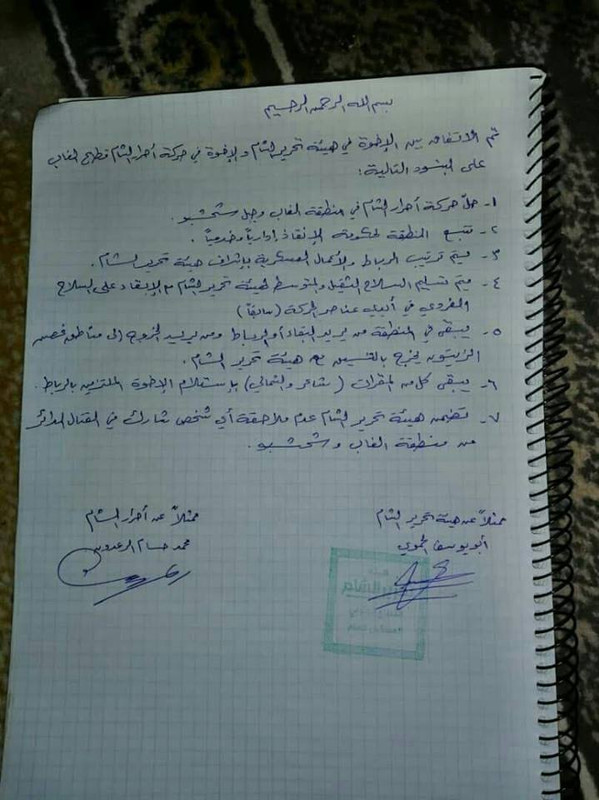 بسم الله الرحمن الرحيم
تمّ الاتفاق بين الإخوة في هيئة تحرير الشام والإخوة في حركة أحرار الشام قطاع الغاب
على البنود التالية:
١- حلّ حركة أحرار الشام في منطقة الغاب وجبل شحشبو.
٢- تتبع المنطقة لحكومة الإنقاذ إدارياً وخدمياً.
٣- يتم ترتيب الرباط والأعمال العسكرية بإشراف هيئة تحرير الشام.
٤- يتم تسليم السلاح الثقيل والمتوسط لهيئة تحرير الشام مع الإبقاء على السلاح
الفردي في أيدي عناصر الحركة (سابقاً)
٥- يبقى في المنطقة من يريد البقاء أو الرباط ومن يريد الخروج إلى مناطق غصن
الزيتون يخرج بالتنسيق مع هيئة تحرير الشام.
٦- يبقى كل من المقرات (شاغر والشمالي) باستلام الإخوة الملتزمين بالرباط.
٧- تضمن هيئة تحرير الشام عدم ملاحقة أي شخص شارك في القتال الدائر
من منطقة الغاب وشحشبو.
ممثلاً عن هيئة تحرير الشام
ممثلاً عن أحرار الشام
أبو يوسف الحموي
محمد حسام
هيئة
تحرير الشام